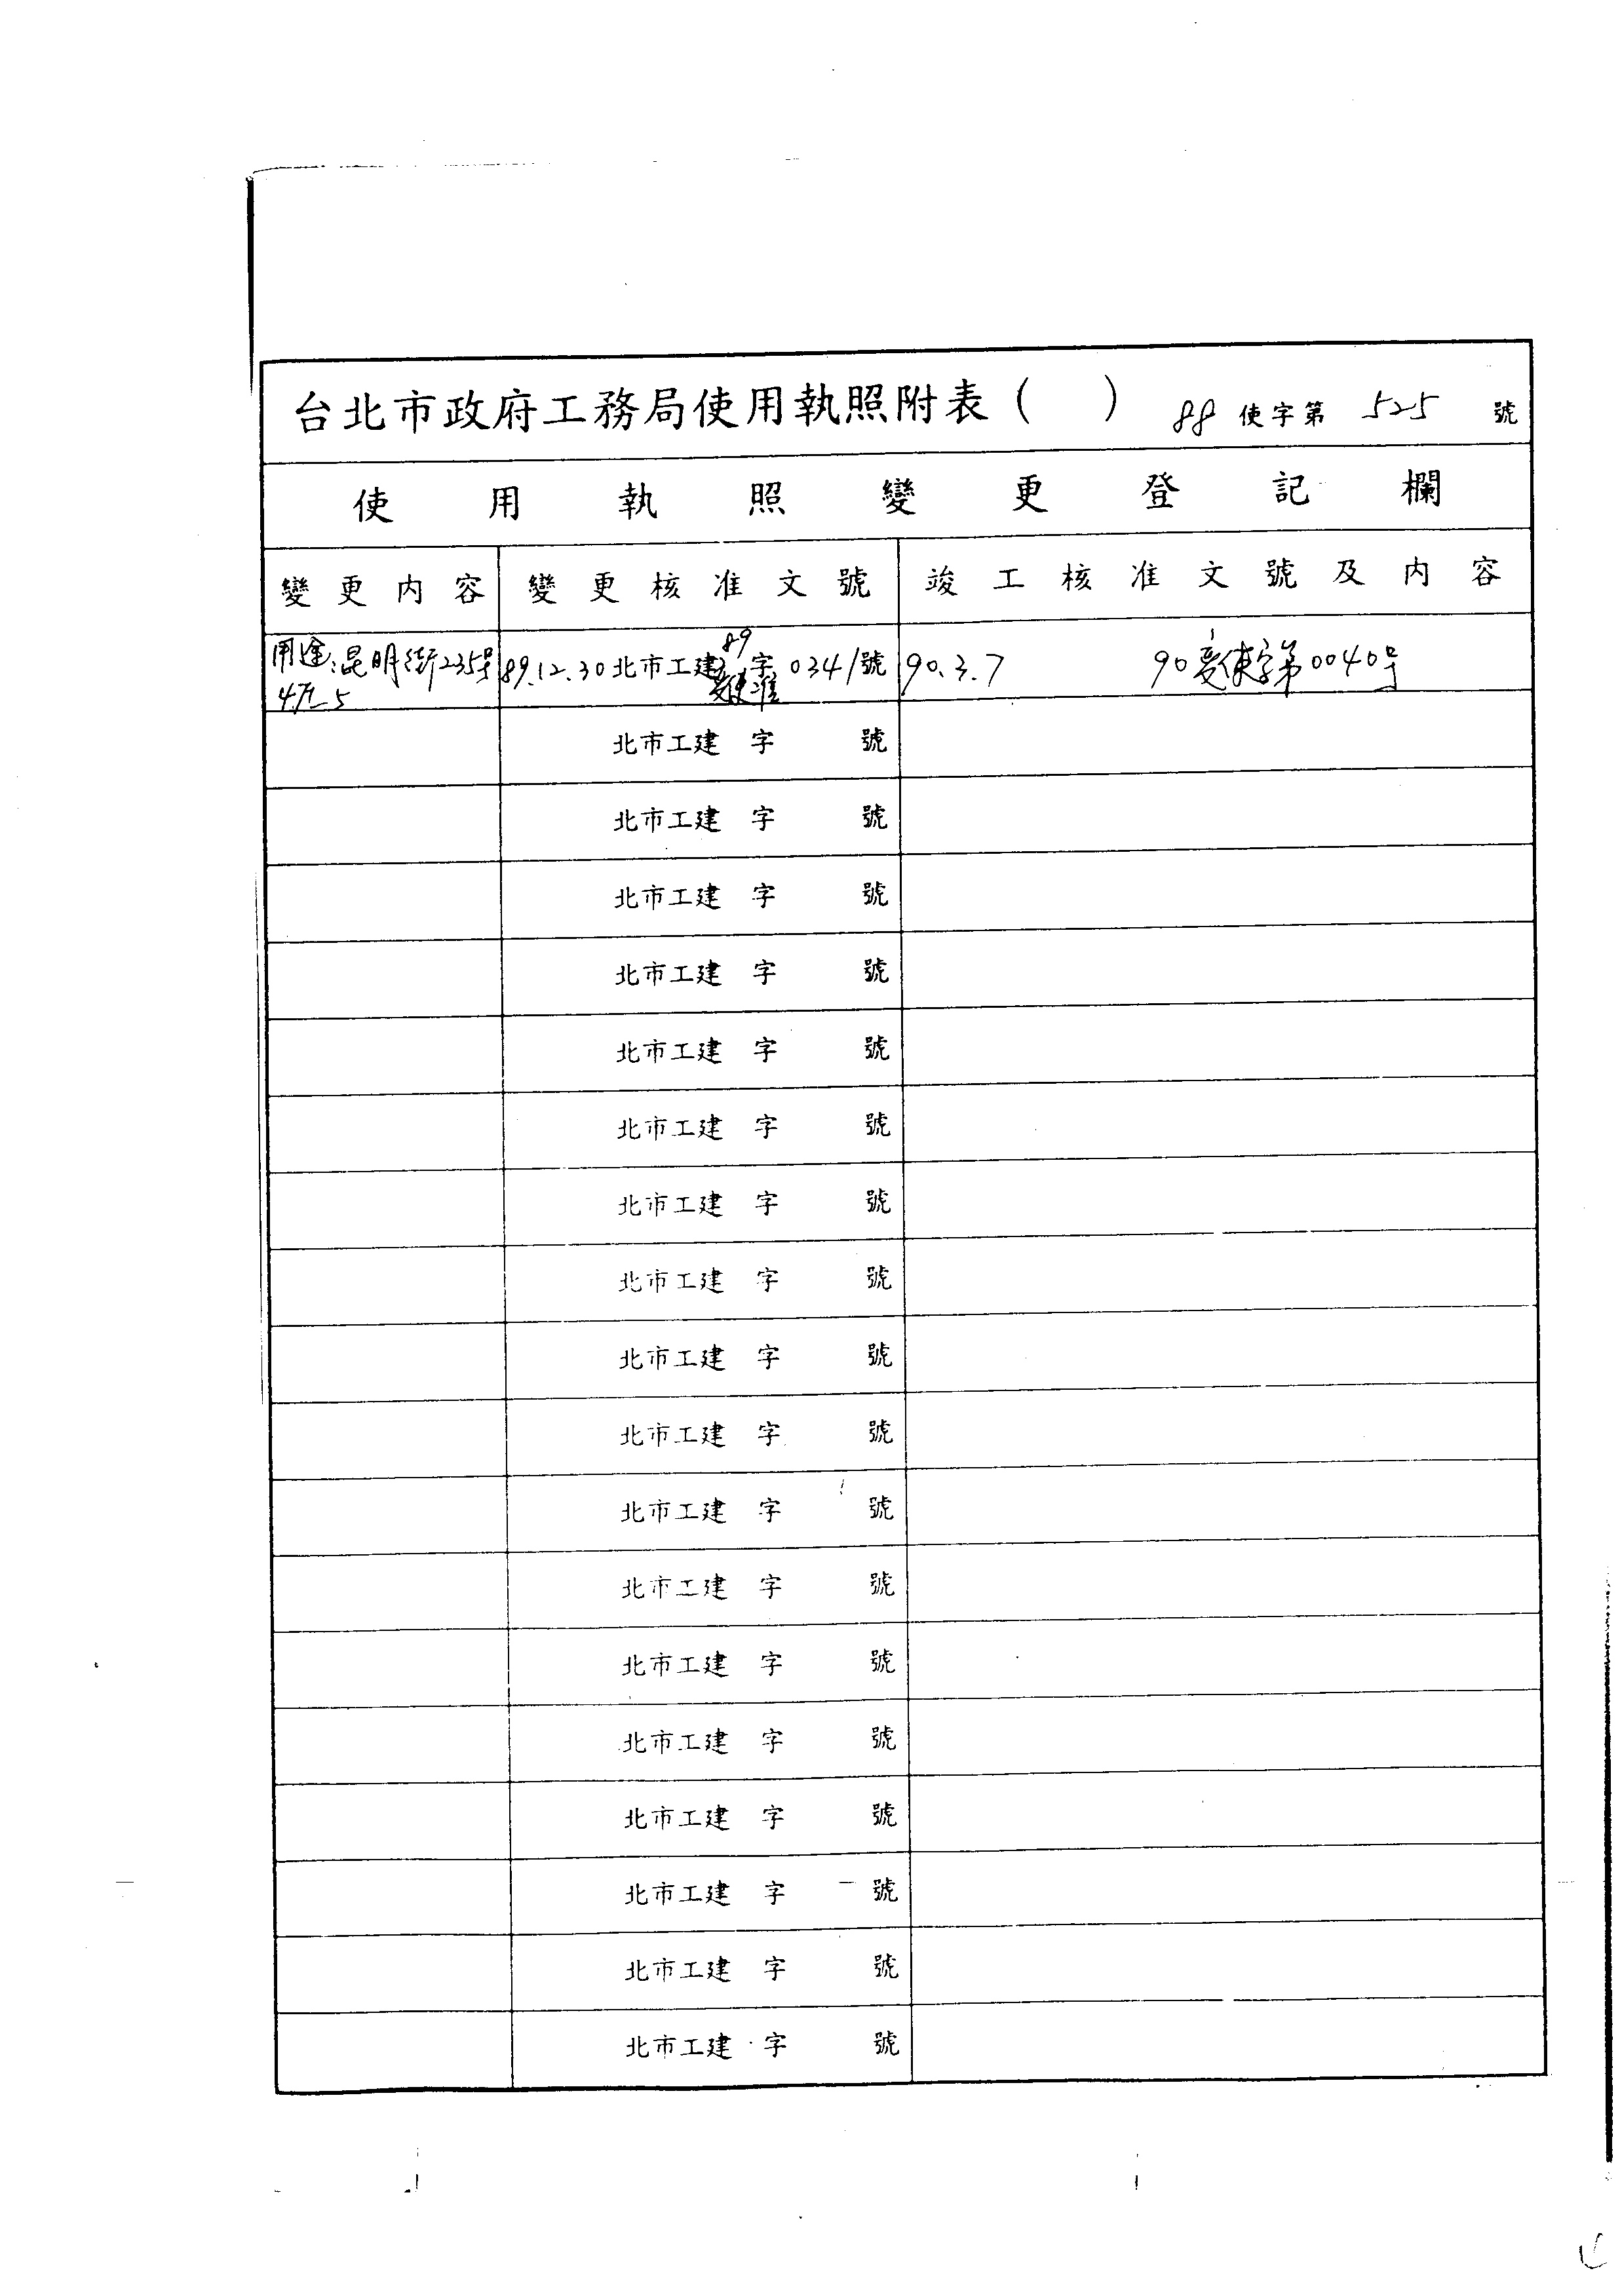 台北市政府工務局使用執照附表( ) 88 使字第 525 號
使用執照變更登記欄
變更內容 變更核准文號 竣工核准文號及內容
用途:昆明街235号 89.12.30 北市工建 89 變使准 字 0341號 90.3.7 90變使字第0040号
北市工建 字 號
北市工建 字 號
北市工建 字 號
北市工建 字 號
北市工建 字 號
北市工建 字 號
北市工建 字 號
北市工建 字 號
北市工建 字 號
北市工建 字 號
北市工建 字 號
北市工建 字 號
北市工建 字 號
北市工建 字 號
北市工建 字 號
北市工建 字 號
北市工建 字 號
北市工建 字 號